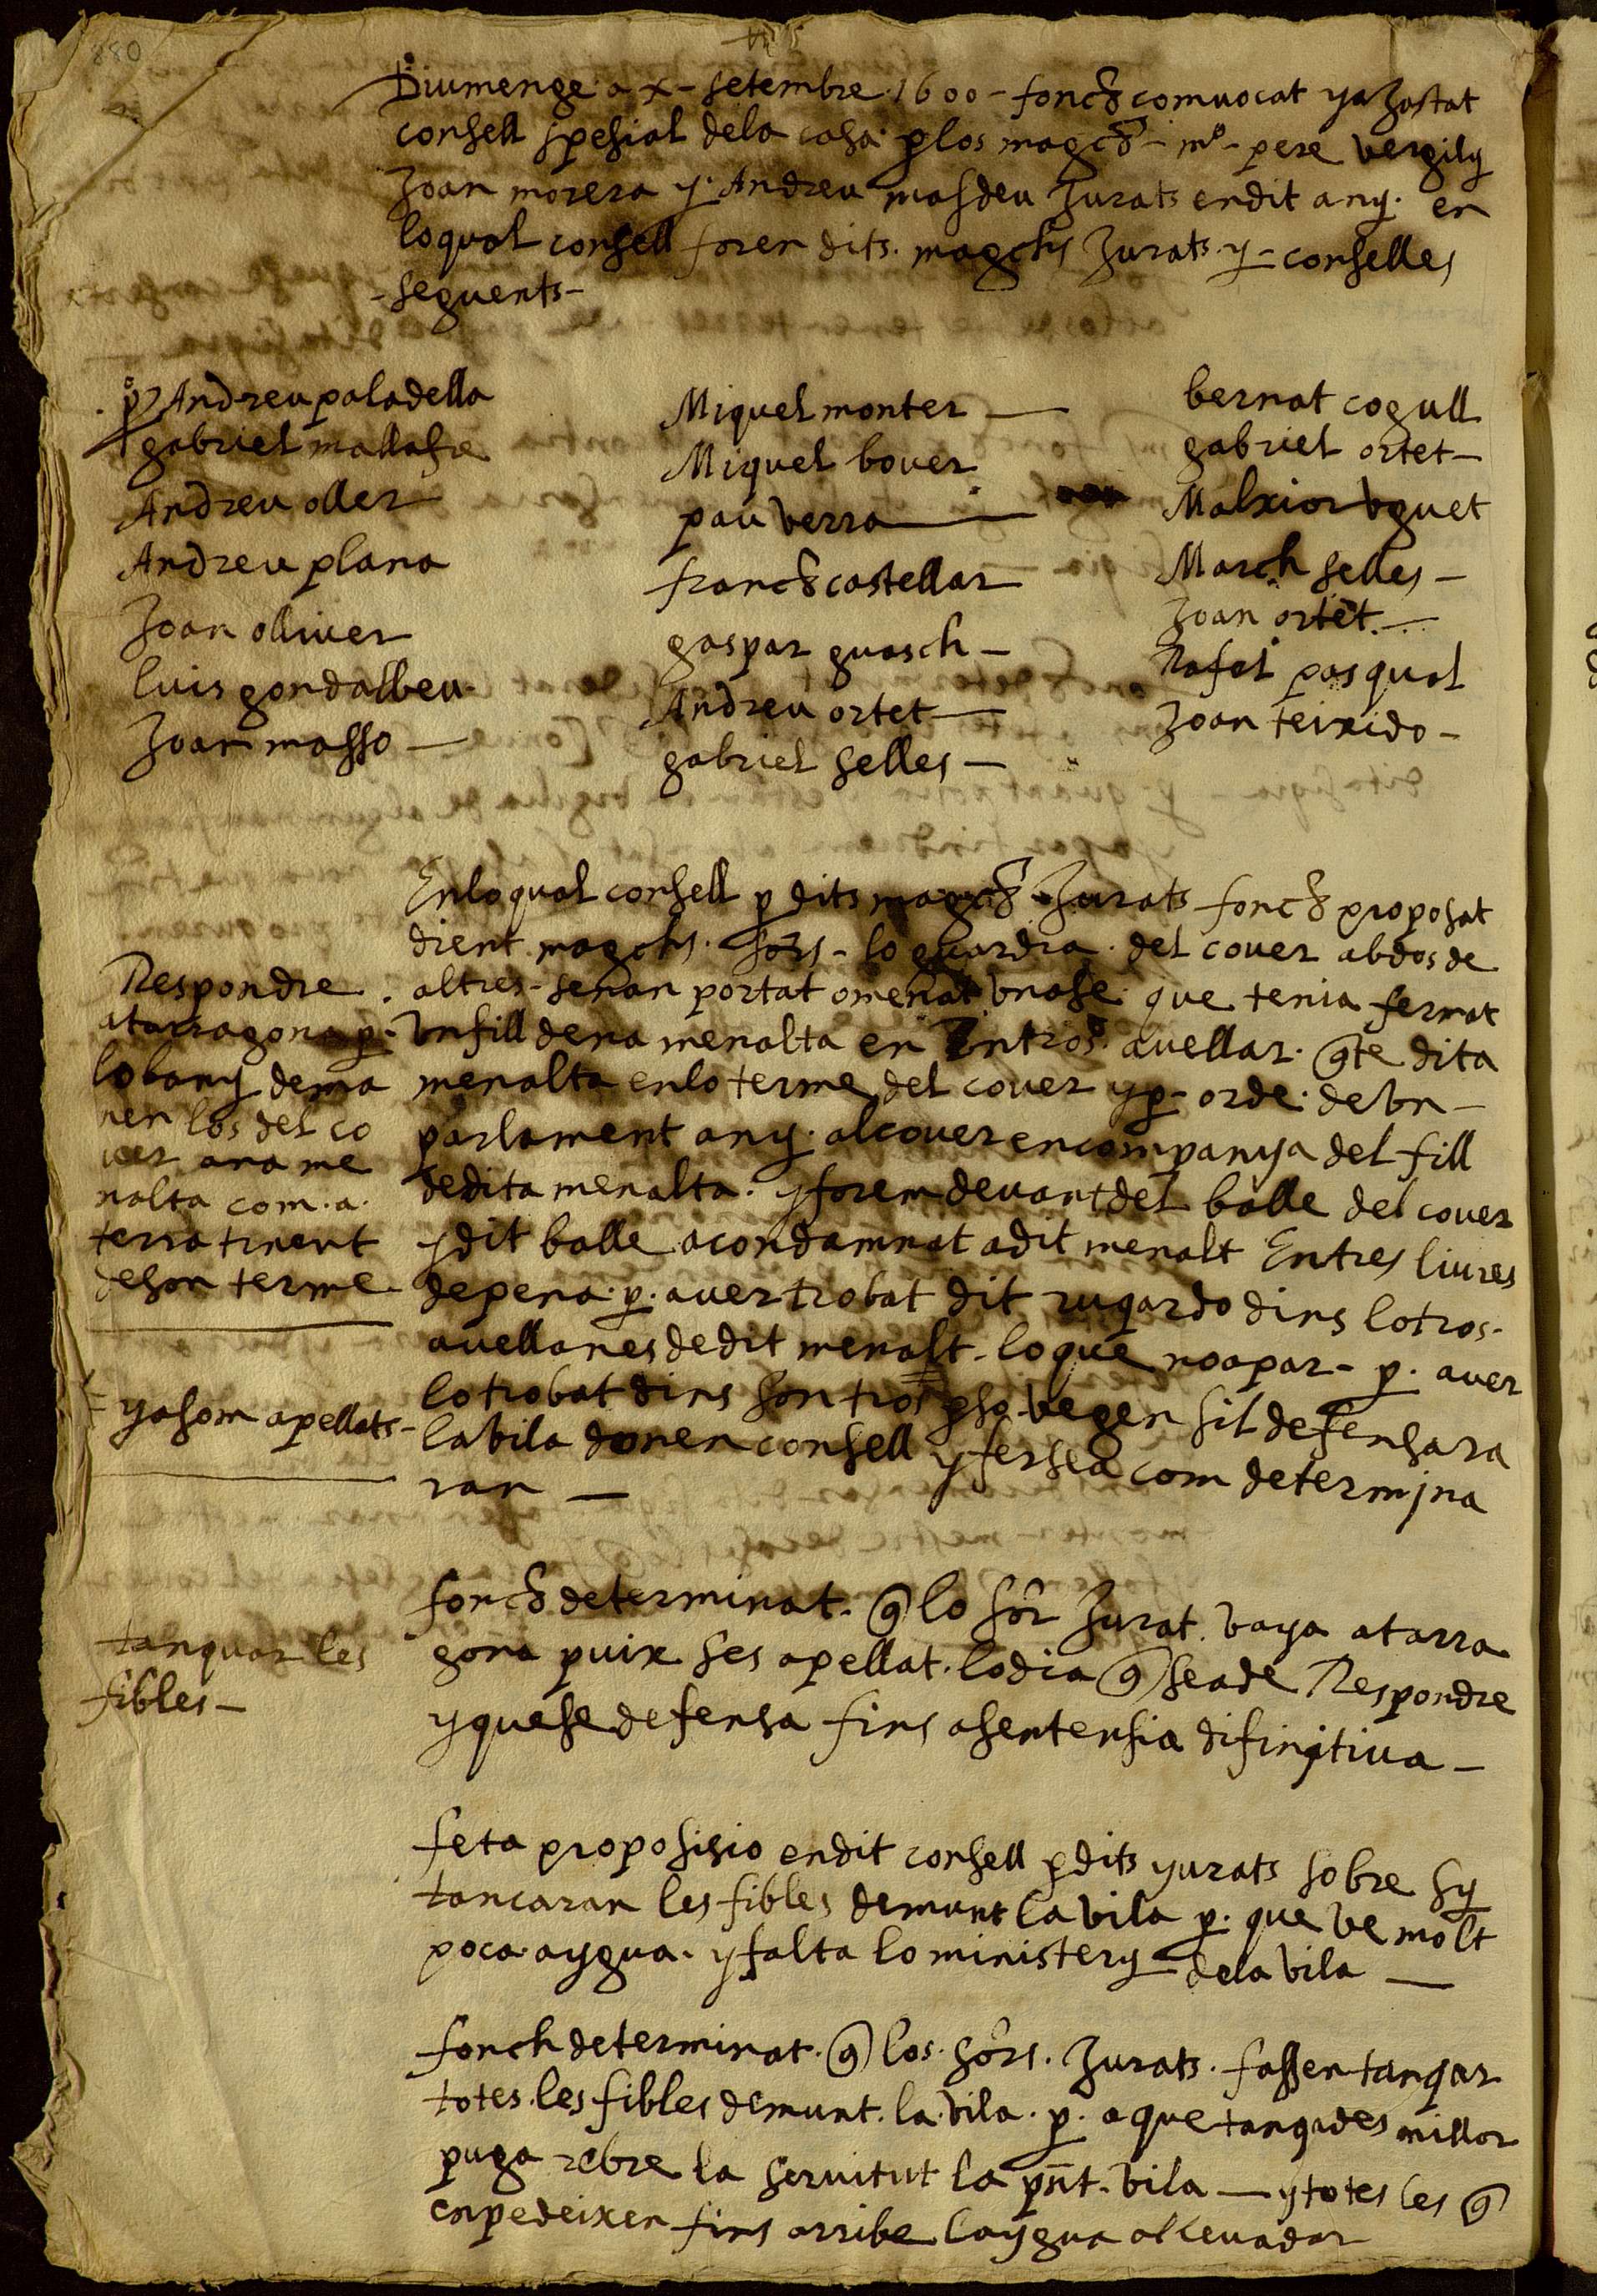 880
Diumenge a x - setembre 1600 - fonch comuocat y aJustat
consell spesial dela casa p los magchs - mº - pere vergily
Joan morera y Andreu masdeu Jurats en dit any. en
lo qual consell foren dits. magchs Jurats y - conselles
- seguents -
Andreu paladella
gabriel mallafre
Andreu oller
Andreu plana
Joan olliuer
luis gondalbeu
Joan masso -
Miquel monter -
Miquel bouer
pau verra -
franch castellar
gaspar guasch -
Andreu ortet -
gabriel selles -
bernat cogull
gabriel ortet -
Malxior vguet
March selles -
Joan ortet. -
Rafel pasqual
Joan teixido -
En lo qual consell p dits magchs Jurats fonch proposat
dient magchs. sors - lo guardia del couer ab dos de
altres - senan portat o menat vn ase que tenia fermat
vn fill de na menalta en vn tros auellar. q te dita
menalta en lo terme del couer y p orde de vn -
parlament any. alcouer en companya del fill
de dita menalta. y forem deuant del balle del couer
y dit balle a condamnat a dit menalt En tres liures
de pena p. auer trobat dit ruqar do dins lo tros
auellanes de dit menalt - lo que no apar - p. auer
lo trobat dins son tros p so vegen sil defensara
la vila donen consell y fer sea com determina
ran -
Respondre
a tarragona p
lo bany dema
nen los del co
uer a na me
nalta com a
terra tinent
de son terme
ya som apellats -
fonch determinat. q lo sor Jurat vaya a tarra
gona puix ses apellat. lo dia q sea de Respondre
y que se defensa fins a sentensia difinitiua -
tanquar les
fibles -
feta proposisio en dit consell p dits yurats sobre sy
tancaran les fibles demunt la vila p. que ve molt
poca aygua. y falta lo ministery dela vila -
fonch determinat. q los. sors. Jurats. fassen tanqar
totes les fibles demunt. la vila. p. a que tanqades millor
puga rebre la seruitut la pnt. vila - y totes les q
enpedeixen fins arribe laygua al leuador